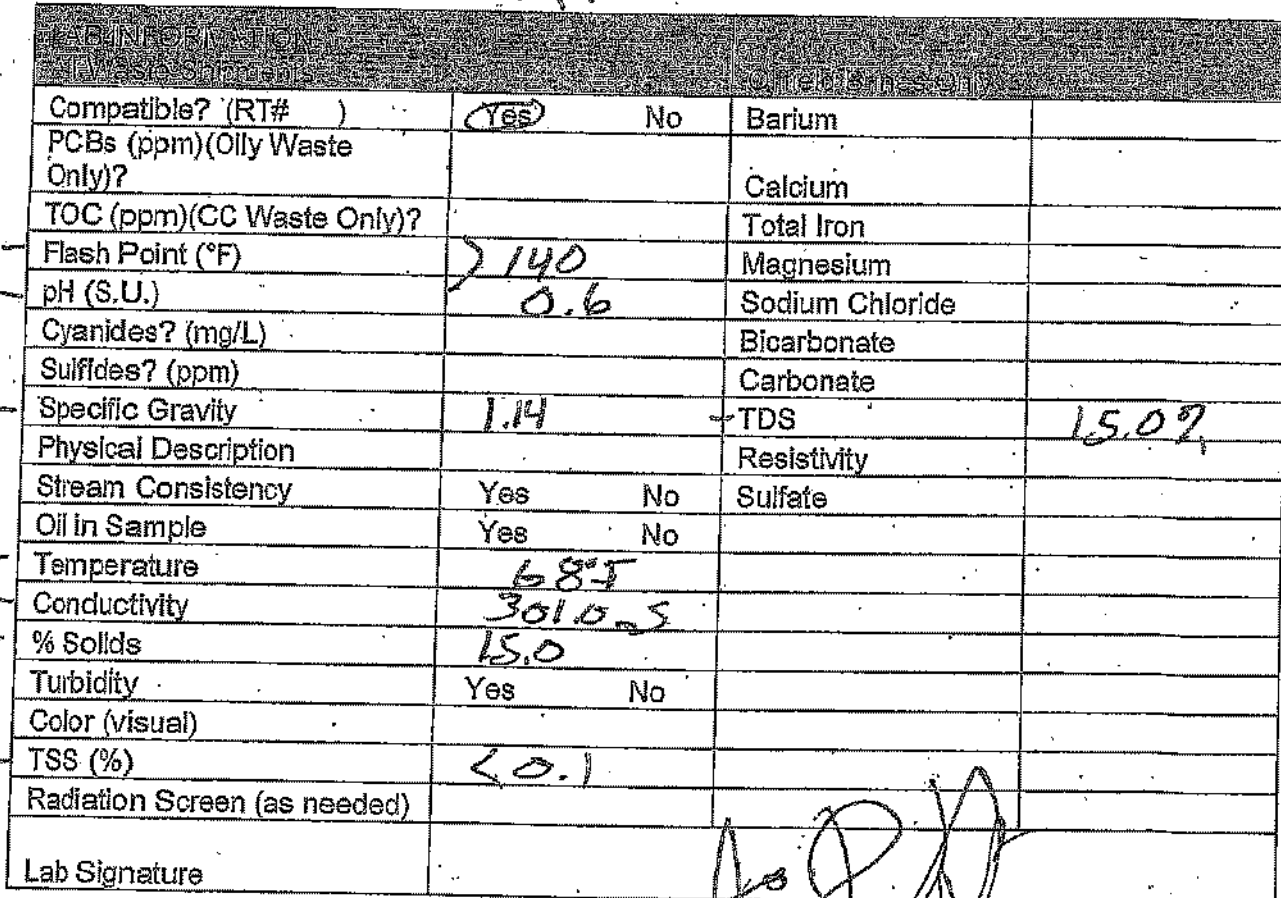 LAB INFORMATION
Waste Shipments
Compatible? (RT# ) Yes No Barium
PCBs (ppm)(Oily Waste
Only)? Calcium
TOC (ppm)(CC Waste Only)? Total Iron
Flash Point (°F) >140 Magnesium
pH (S.U.) 0.6 Sodium Chloride
Cyanides? (mg/L) Bicarbonate
Sulfides? (ppm) Carbonate
Specific Gravity 1.14 TDS 15.0%
Physical Description Resistivity
Stream Consistency Yes No Sulfate
Oil in Sample Yes No
Temperature 68°F
Conductivity 301.0 mS
% Solids 15.0
Turbidity Yes No
Color (visual)
TSS (%) <0.1
Radiation Screen (as needed)
Lab Signature